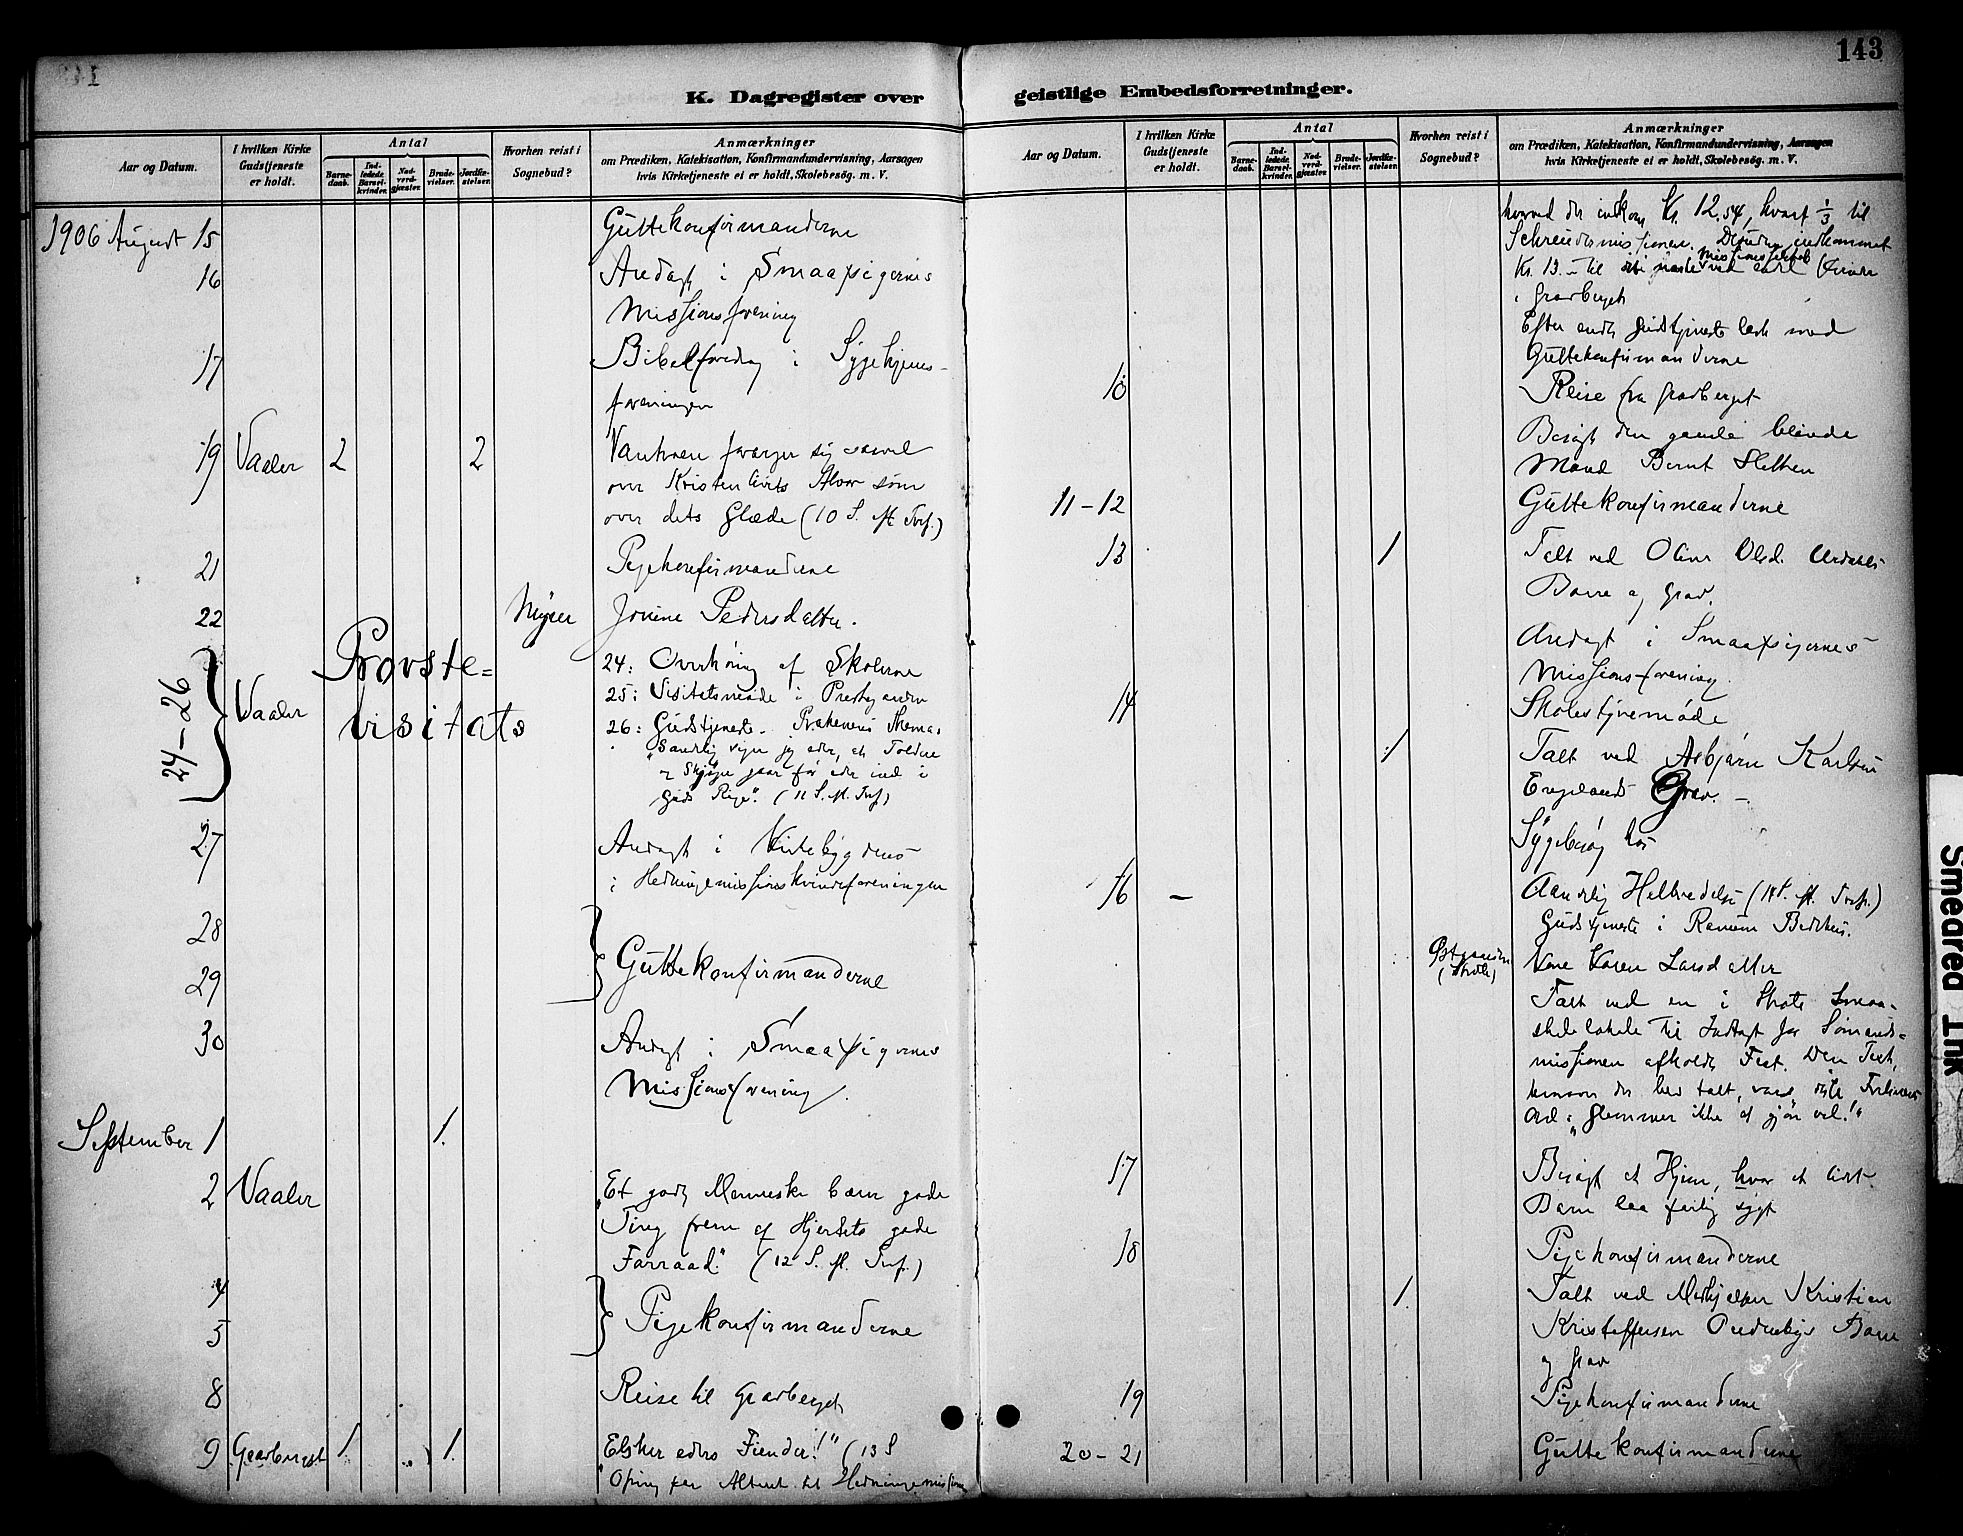 143
K. Dagregister over
geistlige Embedsforretninger.
Aar og Datum.
I hvilken Kirke
Gudstjeneste
er holdt.
Antal
Barne-
daab.
Ind-
ledede
Barsel-
kvinder.
Nad-
verd-
gjæster.
Brude-
vielser.
Jordfæ-
stelser.
Hvorhen reist i
Sognebud?
Anmærkninger
om Prædiken, Katekisation, Konfirmandundervisning, Aarsagen
hvis Kirketjeneste ei er holdt, Skolebesög. m. V.
1906 August 15 Guttekonfirmanderne
16 Andagt i Smaapigernes
Missionsforening
17 Bibelforedrag i Sygehjems-
foreningen
19 Vaaler 2 2 Vantroen forarger sig saavel
over Kristenlivets Alvor som
over dets Glæde (10 S. eft. Tref.)
21 Pigekonfirmanderne
22 Jonine Pedersdatter.
24-26 Vaaler Provste=
visitats
24: Overhöring af Skolerne
25: Visitatsmöde i Prestegaarden
26: Gudstjeneste. Prækenens Thema:
"Sandelig siger jeg eder, at Toldere
og Skjöger gaar för eder ind i
Guds Rige". (11 S. eft. Tref.)
27 Andagt i
i Hedningemissionskvindeforeningen
28
29 Guttekonfirmanderne
30 Andagt i Smaapigernes
Missionsforening.
September 1 1.
2 Vaaler "Et godt Menneske bærer gode
Ting frem af Hjertets gode
Forraad." (12 S. eft. Tref.)
4
5 Pigekonfirmanderne
8 Reise til Graaberget
9 Graaberget 1. 1. "Elsker eders Fiender!" (13 S
Ofring paa Alteret til Hedningemissionen
Aar og Datum.
I hvilken Kirke
Gudstjeneste
er holdt.
Antal
Barne-
daab.
Ind-
ledede
Barsel-
kvinder.
Nad-
verd-
gjæster.
Brude-
vielser.
Jordfæ-
stelser.
Hvorhen reist i
Sognebud?
Anmærkninger
om Prædiken, Katekisation, Konfirmandundervisning, Aarsagen
hvis Kirketjeneste ei er holdt, Skolebesög. m. V.
hvorved der indkom Kr. 12.54, hvoraf 1/3 til
Schreudermissionen. Desuden indkommet
Kr. 13.- til
i Graaberget
Efter endt Gudstjeneste læst med
Guttekonfirmanderne
10 Reise fra Graaberget
Besögt den gamle blinde
Mand Bernt
11-12 Guttekonfirmanderne
13 1 Talt ved Oline Olsd.
Baare og Grav.
Andagt i Smaapigernes
Missionsforening.
14 Skolestyremöde
1 Talt ved Asbjörn Karlsen
Engelands Grav.
Sygebesög hos
16 - Aandelig Helbredelse (14 S. eft. Tref.)
Gudstjeneste i Bedehus.
Karen Larsdatter
Talt ved en i Smaa-
skolelokale til Indtægt for Sömands-
missionen afholdt Fest. Den Text,
hvorover der blev talt, var
Ord: "Glemmer ikke at gjöre vel!"
17 Besögt et Hjem, hvor et lidet
Barn laa farlig sygt
18 Pigekonfirmanderne
1. Talt ved Medhjælper Kristian
Kristoffersen Baare
og Grav
19 Pigekonfirmanderne
20-21 Guttekonfirmanderne
Smeared Ink